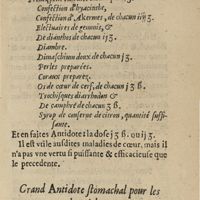 Confection d'hyacinthe,
Confection d'Akermes, de chacun iiʒ.
Electuaires de gemmis, &
De dianthos de chacun iʒ.
Diambre.
Dimoschium doux de chacun ʒ.
Perles preparées.
Coraux preparez.
Os de cœur de cerf, de chacun ʒ ß.
Trochisques diarrhodon &
De camphre de chacun ʒ ß.
Syrop de l'aigreur de citron, quantité suffi-
sante.
Et en faites Antidote: la dose j ʒ ß. ou ij ʒ.
Il est vtile ausdites maladies de cœur, mais il
n'a pas vne vertu si puissante & efficacieuse que
le precedente.
Grand Antidote stomachal pour les